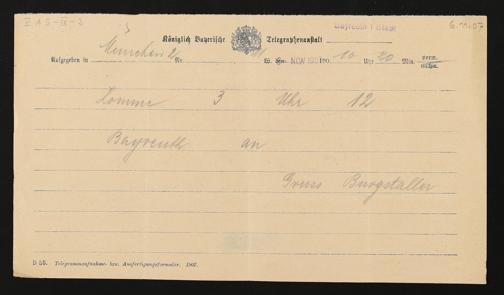 II A 5-IX-2
6.11.07
Königlich Bayerische Telegraphenanstalt
Bayreuth 1 Stadt
Aufgegeben in München 2 Nr. NOV 190 10 Uhr 20 Min. vorm. nachm.
Komme 3 Uhr 12
Bayreuth an
Gruss Burgstaller
D 55. Telegrammaufnahme- bzw. Ausfertigungsformular. 1907.